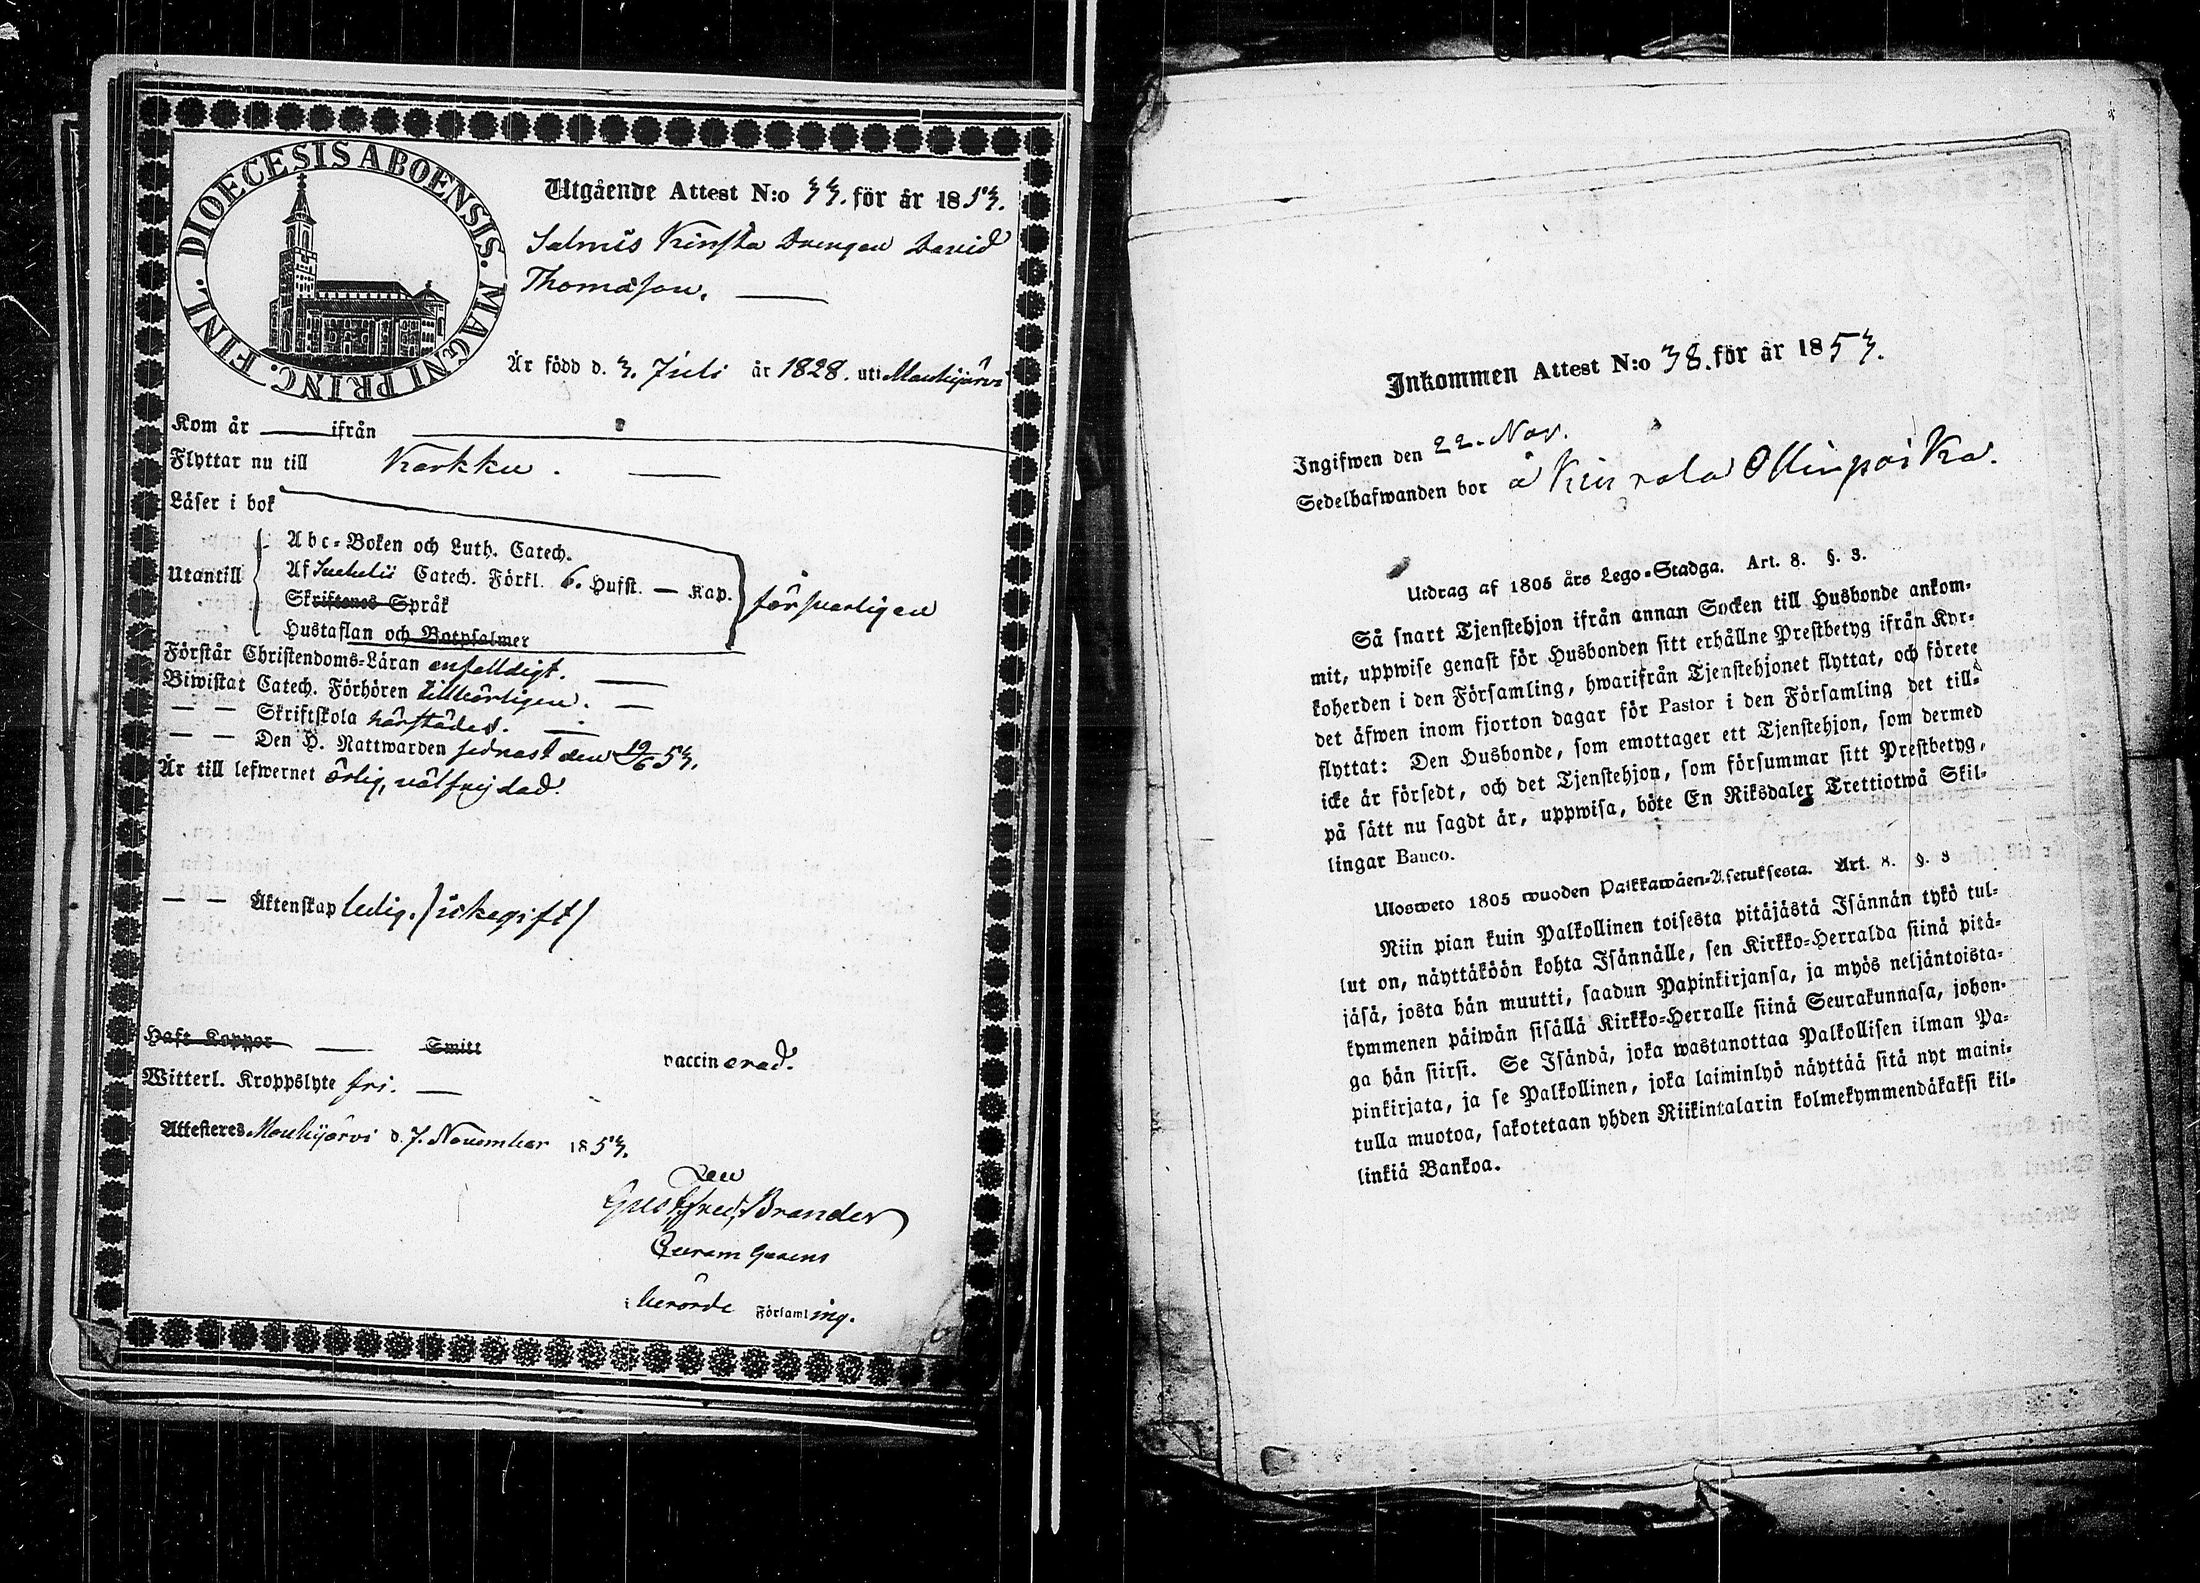 DIOECESIS ABOENSIS. MAGNI PRINC. FINL.
Utgående Attest N:o 33. för år 1853.
Salmis Kinsta Drengen David
Thomasson.
Är född d. 3. Juli år 1828. uti Mouhijärvi
Kom år ifrån
Flyttar nu till Karkku.
Läser i bok
Utantill
Abc-Boken och Luth. Catech.
Af Svebelii Catech. Förkl. 6. Hufst. — Kap.
Skriftenes Språk
Hustaflan och Botpsalmer
försvarligen
Förstår Christendoms-Läran enfaldigt.
Biwistat Catech. Förhören tillbörligen.
— — Skriftskola härstädes.
— — Den H. Nattwarden sednast den 19/6 53.
Är till lefwernet ärlig, välfrejdad.
— — Äktenskap ledig. /icke gift/
Haft Koppor — Smitt vaccinerad.
Witterl. Kroppslyte fri. —
Attesteras Mouhijärvi d. 7. November 1853.
Gust. Fred. Brander
Curam Gerens
i berörde Församling.
Inkommen Attest N:o 38. för år 1853.
Ingifwen den 22. Nov.
Sedelhafwanden bor å Kinnala Ollinpoika.
Utdrag af 1805 års Lego-Stadga. Art. 8. §. 3.
Så snart Tjenstehjon ifrån annan Socken till Husbonde ankom-
mit, uppwise genast för Husbonden sitt erhållne Prestbetyg ifrån Kyr-
koherden i den Församling, hwarifrån Tjenstehjonet flyttat, och förete
det äfwen inom fjorton dagar för Pastor i den Församling det till-
flyttat: Den Husbonde, som emottager ett Tjenstehjon, som dermed
icke är försedt, och det Tjenstehjon, som försummar sitt Prestbetyg,
på sätt nu sagdt är, uppwisa, böte En Riksdaler Trettiotwå Skil-
lingar Banco.
Ulosweto 1805 wuoden Palkkawäen-Asetuksesta. Art. 8. §. 3
Niin pian kuin Palkollinen toisesta pitäjästä Isännän tykö tul-
lut on, näyttäköön kohta Isännälle, sen Kirkko-Herralda siinä pitä-
jäsä, josta hän muutti, saadun Papinkirjansa, ja myös neljäntoista-
kymmenen päiwän sisällä Kirkko-Herralle siinä Seurakunnasa, johon-
ga hän siirsi. Se Isändä, joka wastanottaa Palkollisen ilman Pa-
pinkirjata, ja se Palkollinen, joka laiminlyö näyttää sitä nyt maini-
tulla muotoa, sakotetaan yhden Riikintalarin kolmekymmendäkaksi kil-
linkiä Bankoa.